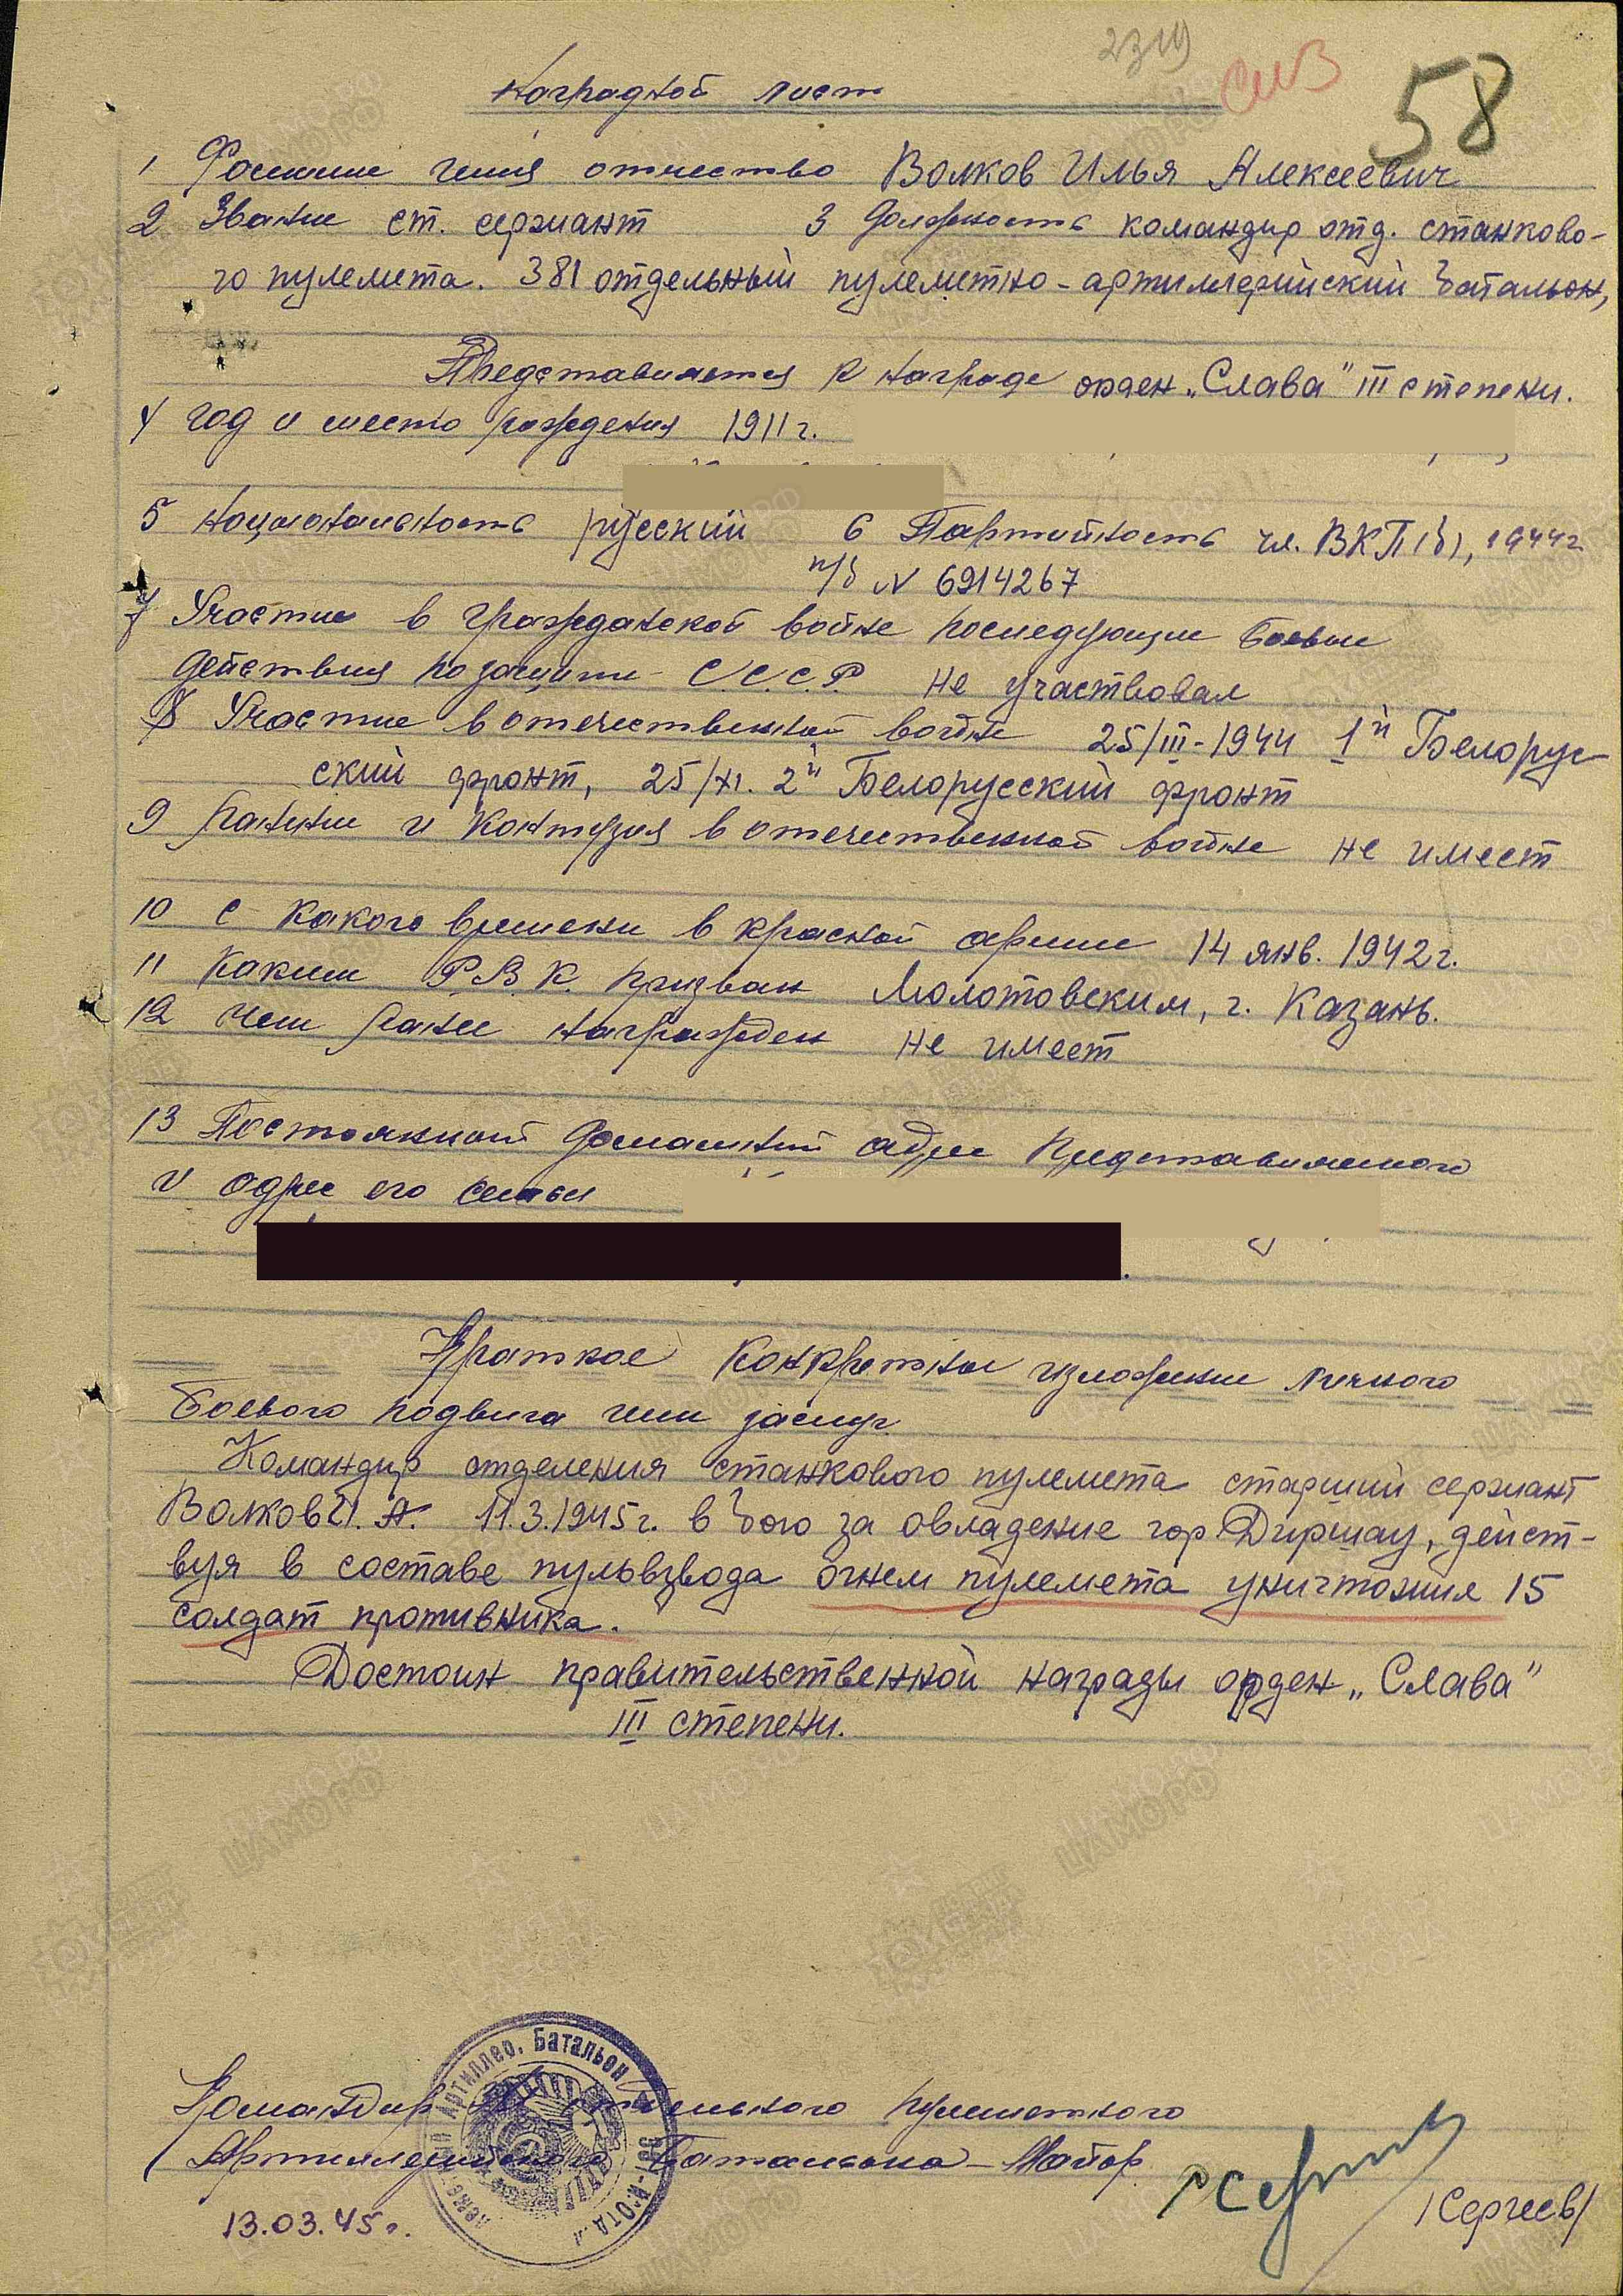 2319
СМЗ
58
Наградной лист
1 Фамилие имя отчество Волков Илья Алексеевич
2 Звание ст. сержант 3 Должность командир отд. станково-
го пулемета. 381 отдельный пулеметно-артиллерийский батальон,
Представляется к награде орден „Слава" III степени.
4 год и место рождения 1911 г.
5 национальность русский 6 Партийность чл. ВКП(б), 1944г
п/б N 6914267
7 Участие в гражданской войне последующие боевые
действия по защите С.С.С.Р. не участвовал
8 Участие в отечественной войне 25/III-1944 1й Белорус-
ский фронт, 25/XI. 2й Белорусский фронт
9 Ранение и контузия в отечественной войне не имеет
10 С какого времени в красной армии 14 янв. 1942 г.
11 Каким Р.В.К. призван Молотовским, г. Казань.
12 Чем ранее награжден не имеет
13 Постоянный домашний адрес представляемого
и адрес его семьи
Краткое конкретное изложение личного
боевого подвига или заслуг
Командир отделения станкового пулемета старший сержант
Волков И. А. 11.3.1945г. в бою за овладение гор Диршау, дейст-
вуя в составе пульвзвода огнем пулемета уничтожил 15
солдат противника.
Достоин правительственной награды орден „Слава"
III степени.
Командир отдельного пулеметного
Артиллерийского Батальона - Майор
Артиллер. Батальон
13.03.45г.
/Сергеев/